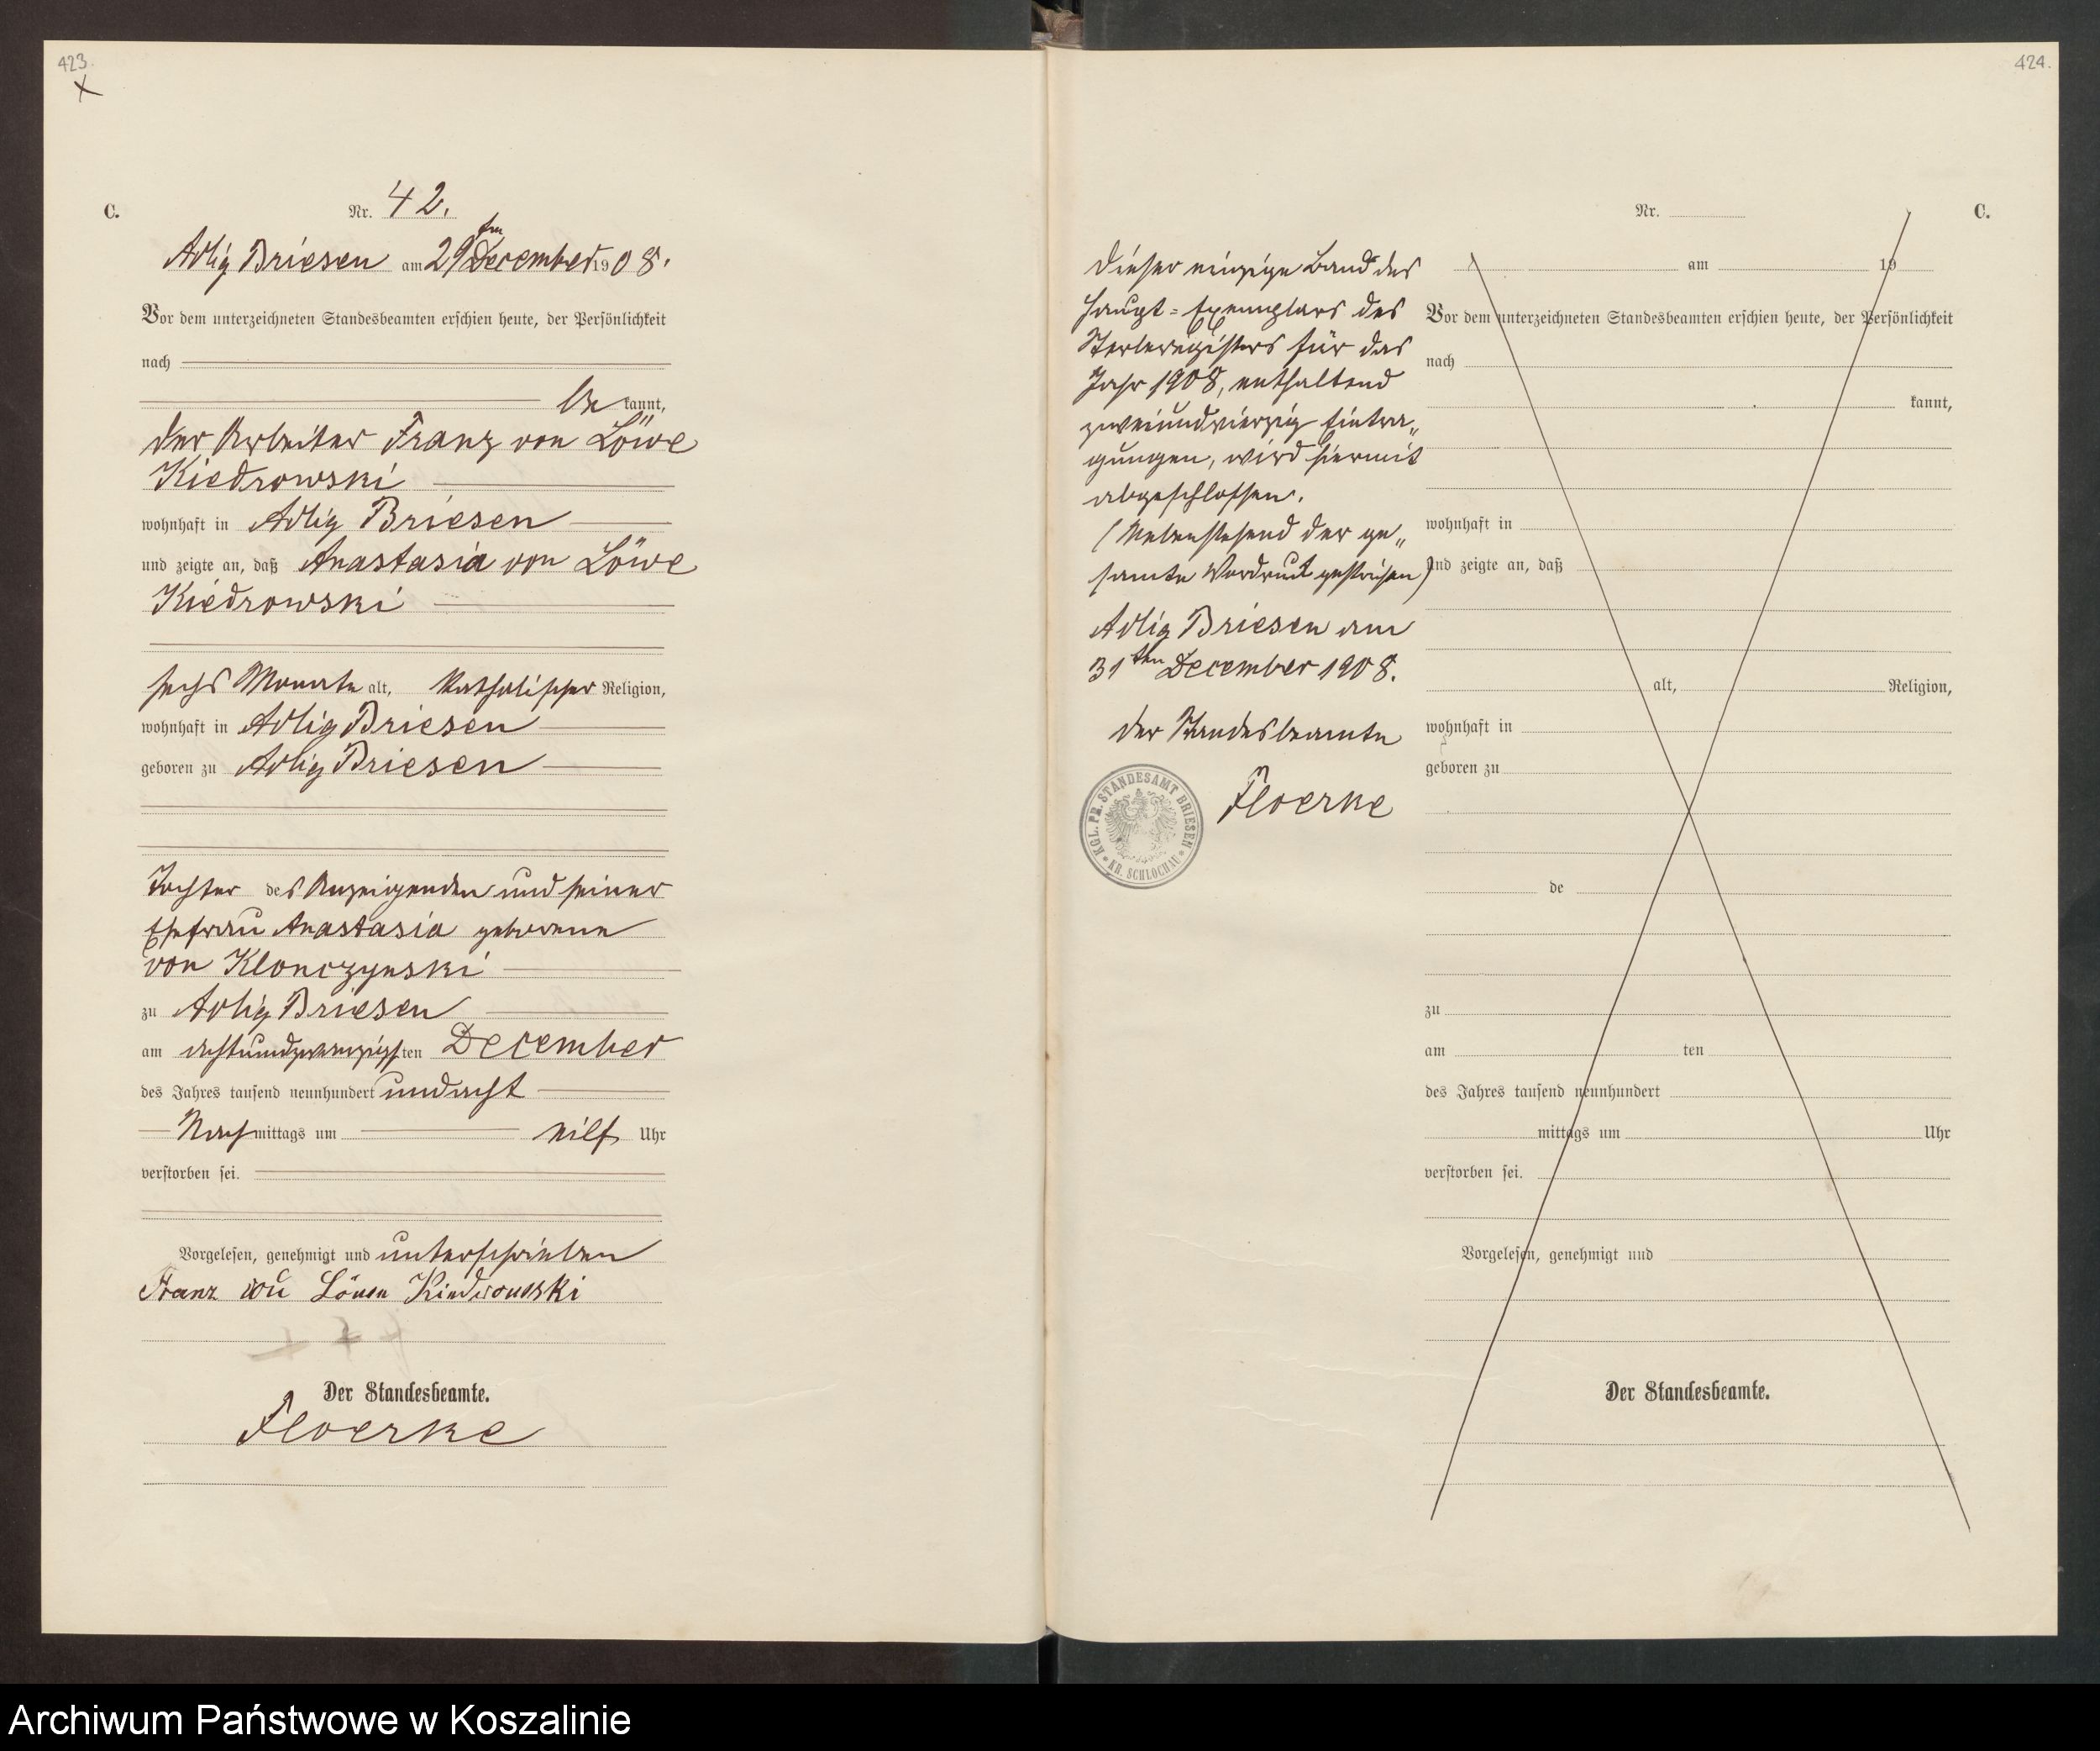 423.
C.
Nr. 42.
Adlig Briesen am 29ten December 1908.
Vor dem unterzeichneten Standesbeamten erschien heute, der Persönlichkeit
nach
be kannt,
der Arbeiter Franz von Löwe
Kiedrowski
wohnhaft in Adlig Briesen
und zeigte an, daß Anastasia von Löwe
Kiedrowski
sechs Monate alt, katholischer Religion,
wohnhaft in Adlig Briesen
geboren zu Adlig Briesen
Tochter des Anzeigenden und seiner
Ehefrau Anastasia geborene
von Klonczynski
zu Adlig Briesen
am achtundzwanzigsten December
des Jahres tausend neunhundert undacht
Nachmittags um eilf Uhr
verstorben sei.
Vorgelesen, genehmigt und unterschrieben
Franz von Löwen Kiedrowski
Der Standesbeamte.
Floerke
424.
C.
Dieser einzige Band des
Haupt=Exemplars des
Sterberegisters für das
Jahr 1908, enthaltend
zweiundvierzig Eintra„
gungen, wird hiermit
abgeschlossen.
(Nebenstehend der ge„
samte Vordruck gestrichen)
Adlig Briesen am
31ten December 1908.
der Standesbeamte
Floerke
KGL. PR. STANDESAMT BRIESEN
KR. SCHLOCHAU
Nr.
am 19
Vor dem unterzeichneten Standesbeamten erschien heute, der Persönlichkeit
nach
kannt,
wohnhaft in
und zeigte an, daß
alt, Religion,
wohnhaft in
geboren zu
de
zu
am ten
des Jahres tausend neunhundert
mittags um Uhr
verstorben sei.
Vorgelesen, genehmigt und
Der Standesbeamte.
Archiwum Państwowe w Koszalinie